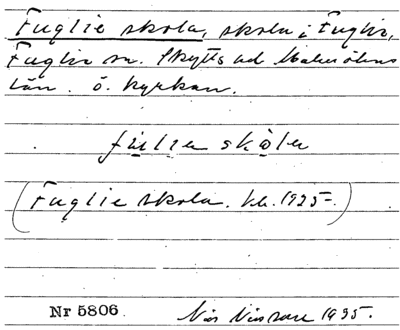 Fuglie skola, skola i Fuglie,
Fuglie sn. Skytts hd Malmöhus
län. ö. kyrkan.
fulıea skåla
(Fuglie skola. kb. 1925-.)
Nr 5806. Nils Nilsson 1935.